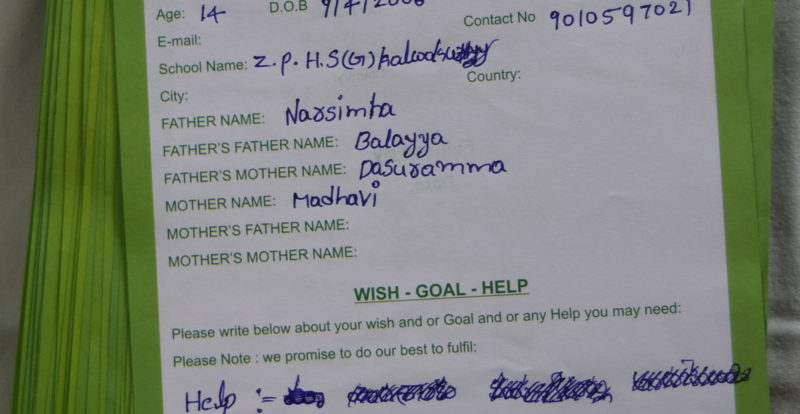 Age: 14 D.O.B
Contact No 9010597021
E-mail:
School Name: Z.P.H.S(G)
Country:
City:
FATHER NAME: Narsimha
FATHER'S FATHER NAME: Balayya
FATHER'S MOTHER NAME: Dasuramma
MOTHER NAME: Madhavi
MOTHER'S FATHER NAME:
MOTHER'S MOTHER NAME:
WISH - GOAL - HELP
Please write below about your wish and or Goal and or any Help you may need:
Please Note : we promise to do our best to fulfil:
Help :=